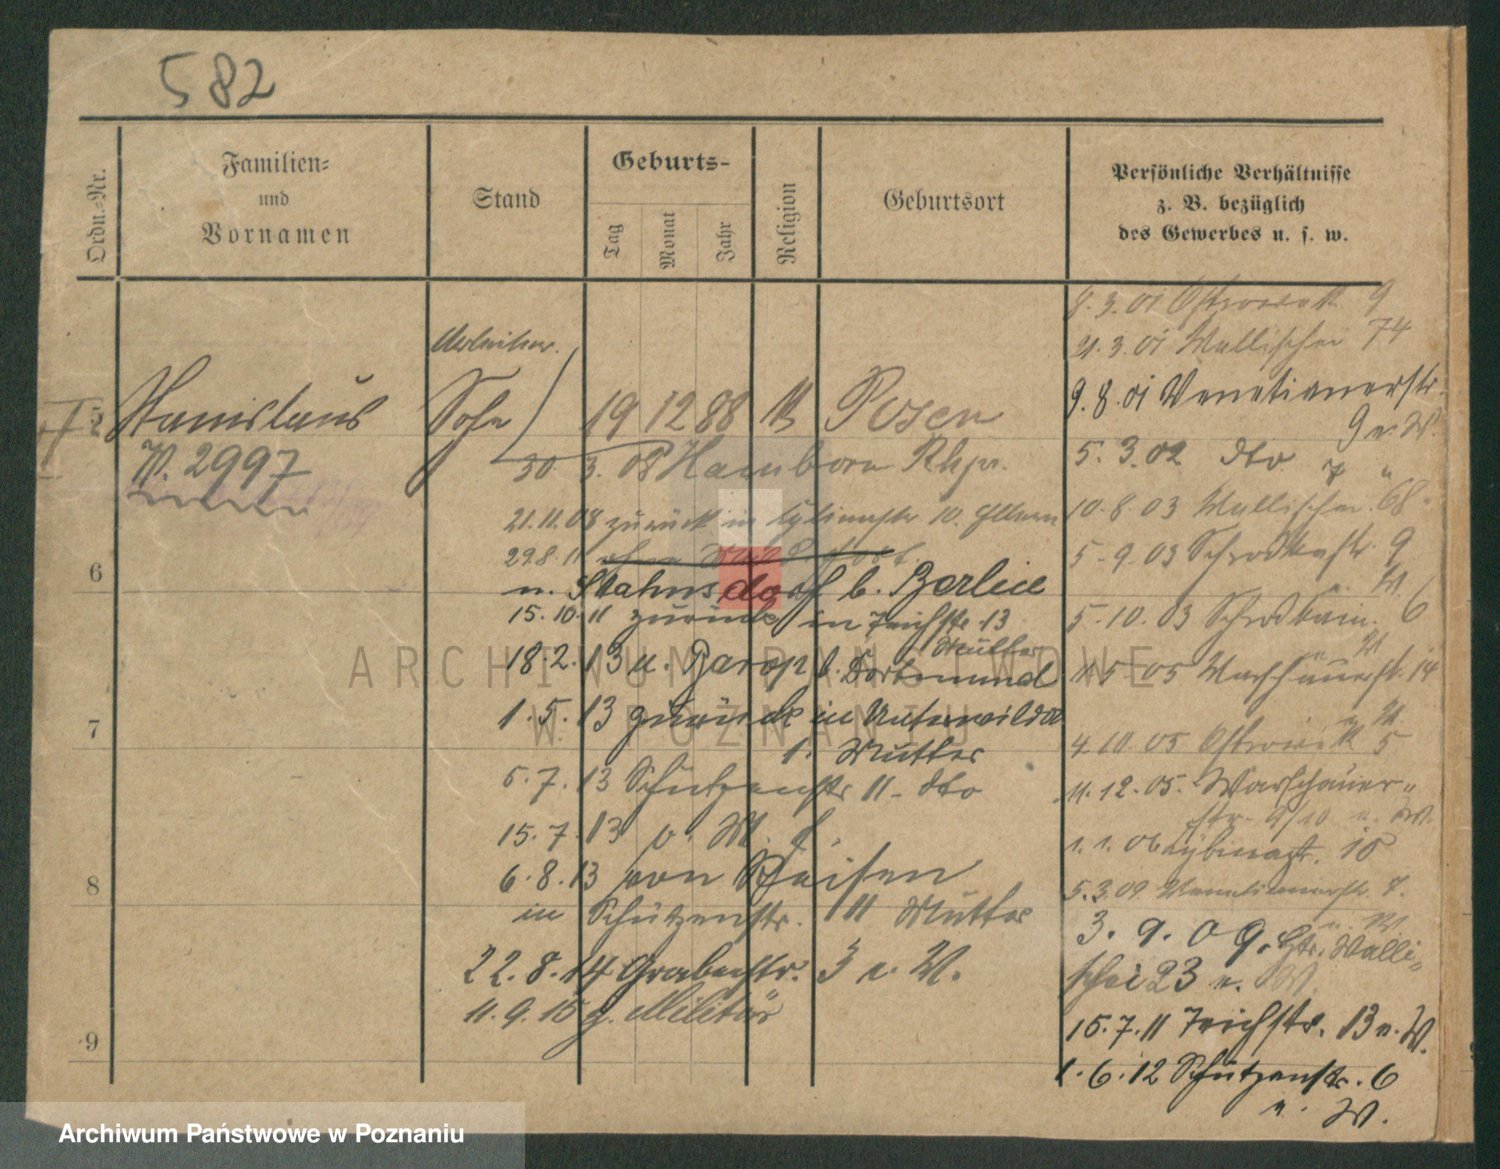 582
Ordn.-Nr.
Familien-
und
Vornamen
Stand
Geburts-
Tag
Monat
Jahr
Religion
Geburtsort
Persönliche Verhältnisse
z. B. bezüglich
des Gewerbes u. s. w.
Arbeiter.
Stanislaus Sohn 19 12 88 K Posen
W. 2997
30 3. 08 Hamborn Rhpr.
21.11.08 zurück in 10. Eltern
29.8.11
n. Stahnsdorf b. Berlin
6
15.10.11 zurück in Teichstr 13
Mutter
18.2.13 n. Barop b. Dortmund
1.5.13 zurück in Unterwilda
7
1. Mutter
5.7.13 Schützenstr 11 - dto
15.7.13 v.
6.8.13 von Reisen
8
in Schützenstr. 11 Mutter
22.8.14 Grabenstr. 3 n. W.
11.9.15 z. Militär
9
8.3.01 Ostrowek 9
21.3.01 Wallischei 74
9.8.01 Venetianerstr.
9 n. W.
5.3.02 dto 7 "
10.8.03 Wallischei 68
5.9.03 Schrodkastr. 9
n. W.
5.10.03 6
n. W.
5.05 Warschauerstr. 14
n. W.
4.10.05 Ostrowek 5
11.12.05. Warschauer-
str. 9/10 n. W.
1.1.06 10
5.3.09 Venetianerstr 7.
n. W.
3.9.09. Htr. Walli-
schei 23 n. W.
15.7.11 Teichstr. 13 n. W.
1.6.12 Schützenstr. 6
n. W.
ARCHIWUM PAŃSTWOWE
W POZNANIU
Archiwum Państwowe w Poznaniu